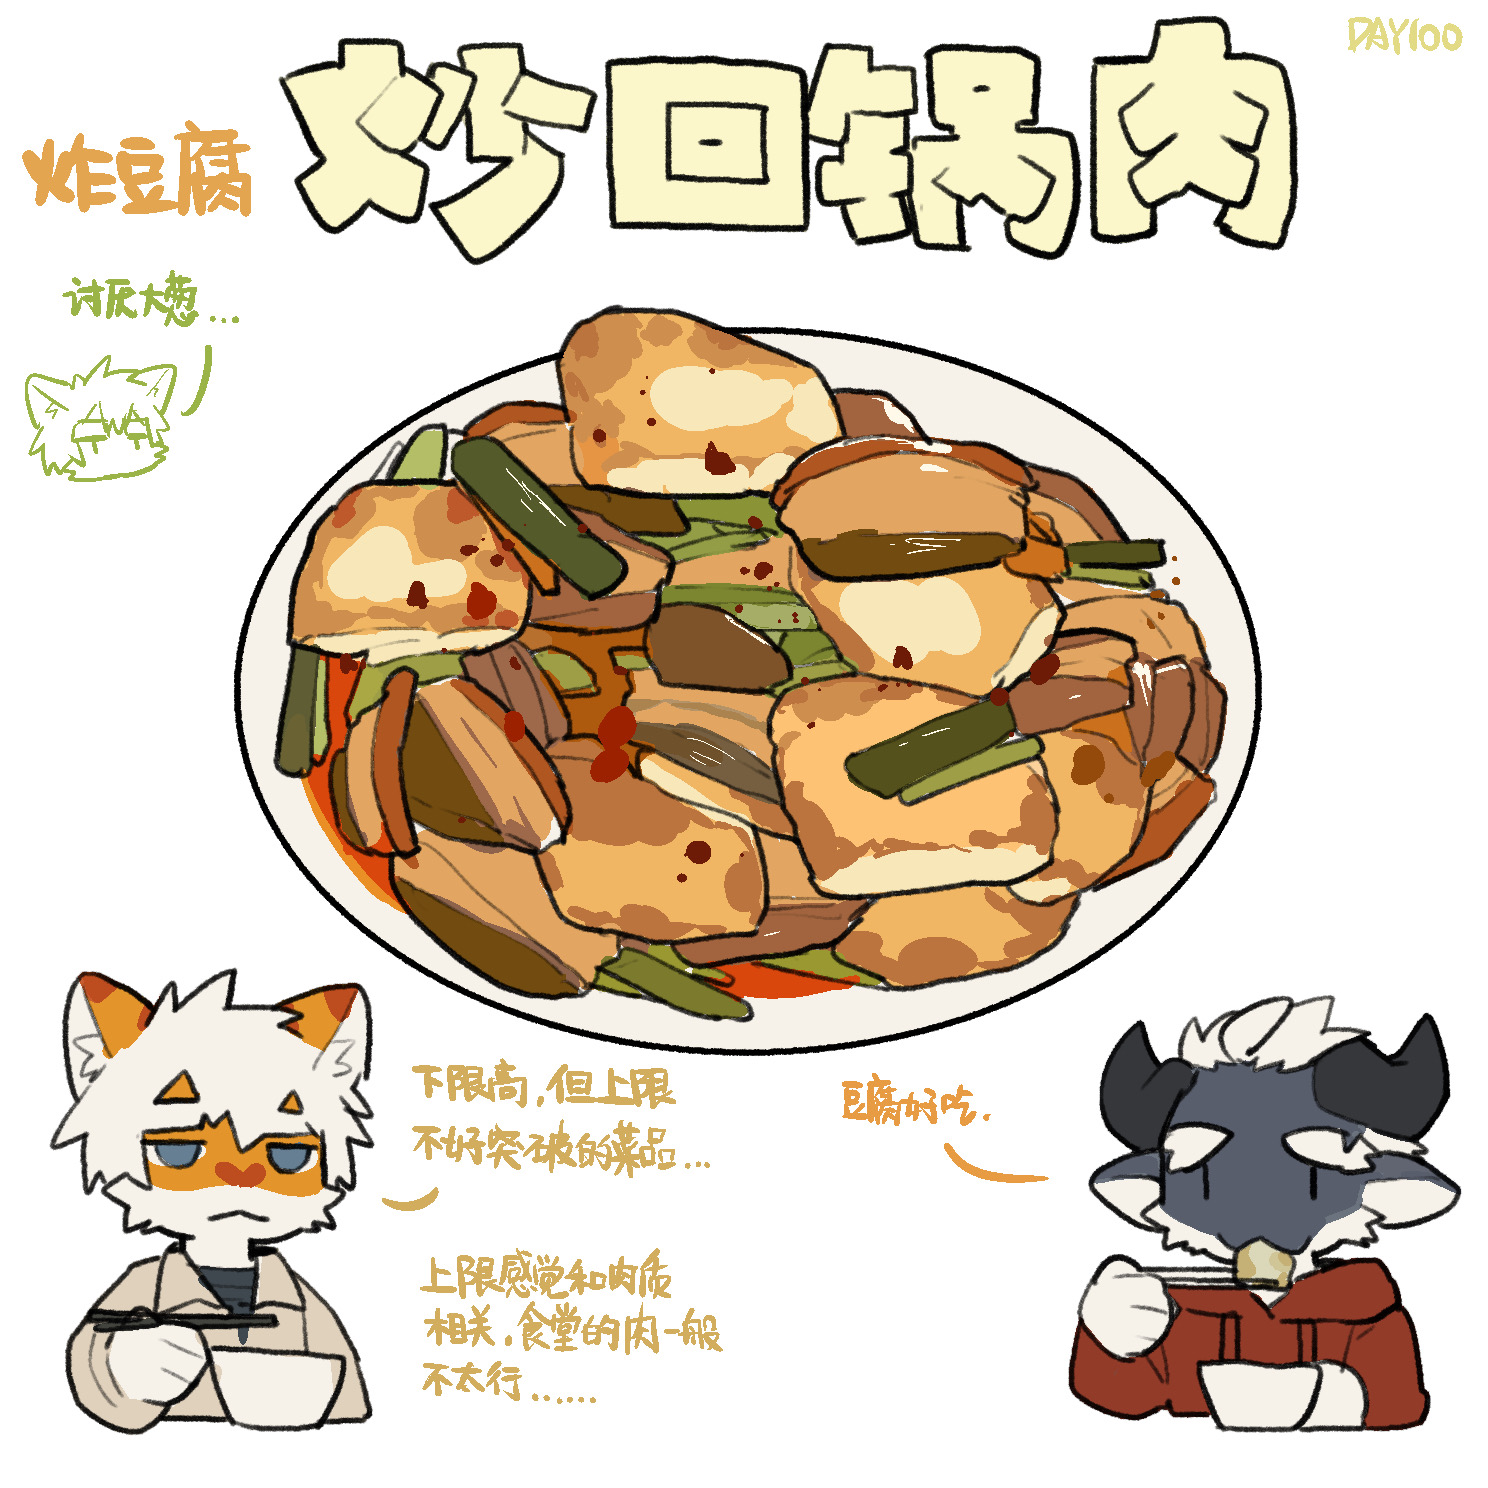 DAY100
炸豆腐
炒回锅肉
讨厌大葱...
下限高,但上限
不好突破的菜品...
豆腐好吃.
上限感觉和肉质
相关,食堂的肉一般
不太行......